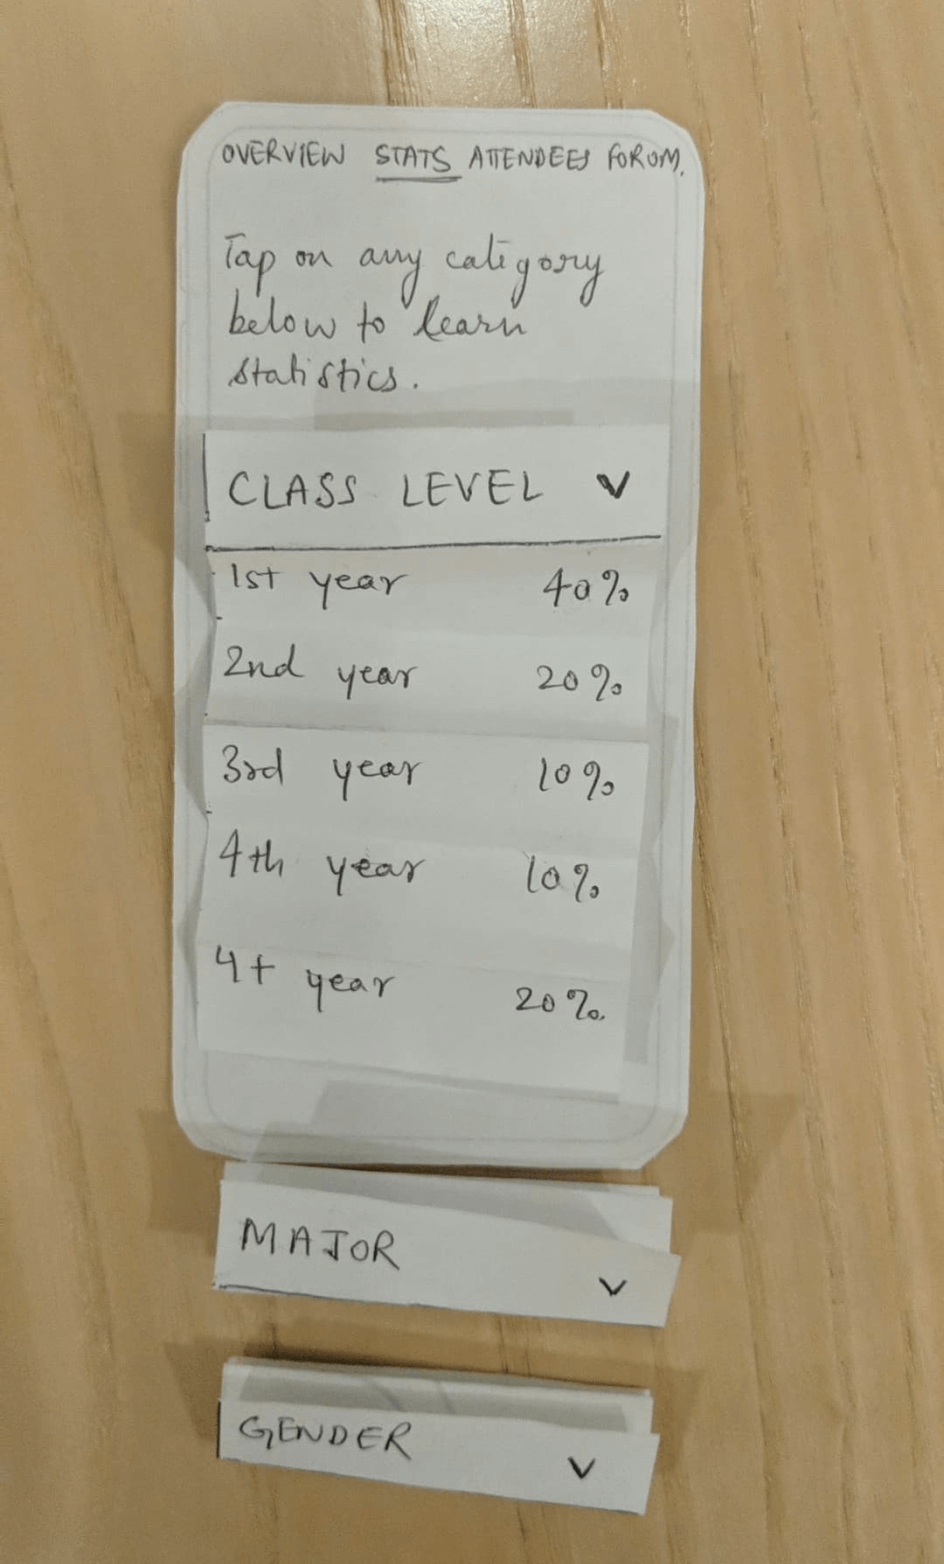 OVERVIEW STATS ATTENDEES FORUM.
Tap on any category
below to learn
statistics.
CLASS LEVEL v
1st year 40%
2nd year 20%
3rd year 10%
4th year 10%
4+ year 20%
MAJOR v
GENDER v